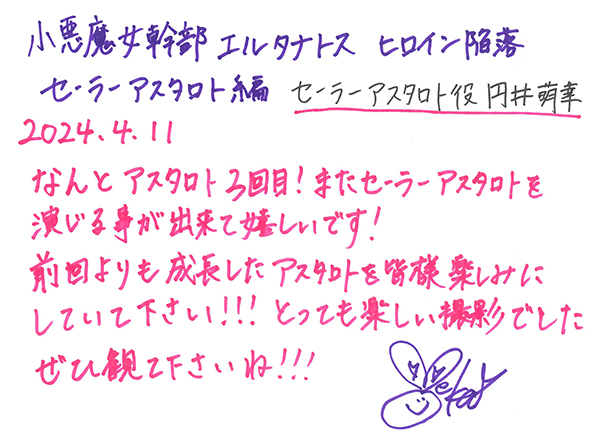 小悪魔女幹部 エルタナトス ヒロイン陥落
セーラーアスタロト編 セーラーアスタロト役 円井萌華
2024.4.11
なんと アスタロト3回目!またセーラーアスタロトを
演じる事が出来て嬉しいです!
前回よりも成長したアスタロトを皆様楽しみに
していて下さい!!! とっても楽しい撮影でした
ぜひ観て下さいね!!!